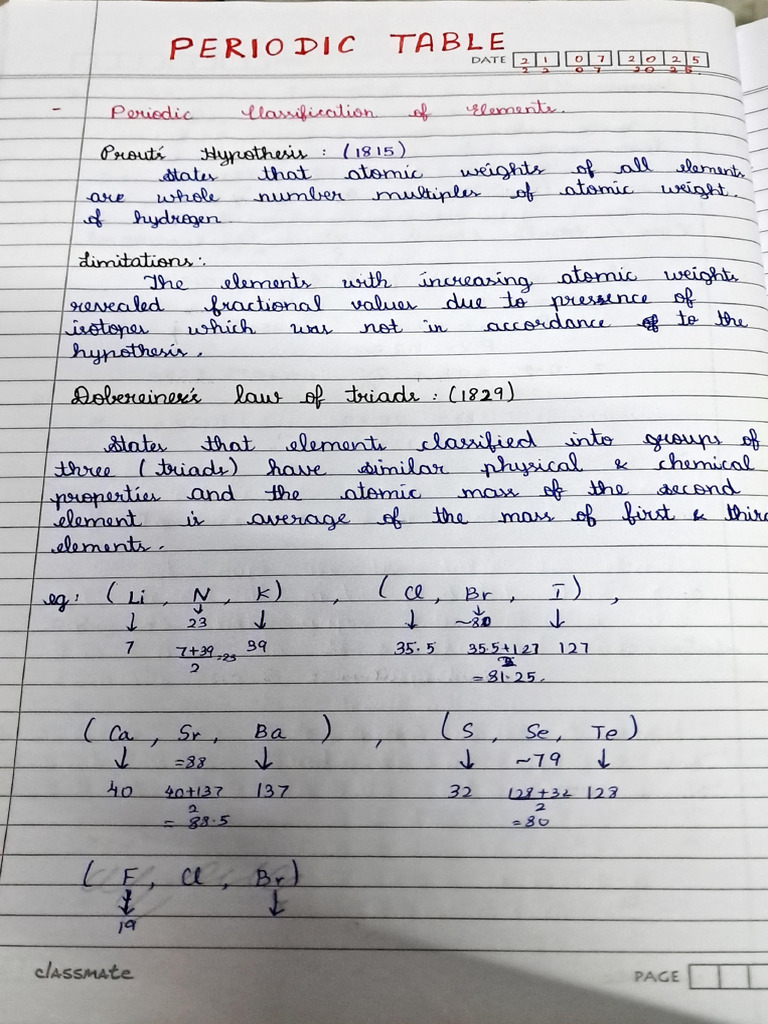 PERIODIC TABLE
DATE 21 07 2025
22 07 2025.
- Periodic Classification of Elements.
Prout's Hypothesis : (1815)
States that atomic weights of all elements
are whole number multiples of atomic weight.
of hydrogen.
Limitations:.
The elements with increasing atomic weights
revealed fractional values due to presence of
isotopes which was not in accordance to the
hypothesis.
Dobereiner's law of triads : (1829)
States that elements classified into groups of
three (triads) have similar physical & chemical
properties and the atomic mass of the second
element is average of the mass of first & third
elements.
eg: (Li, N, K), (Cl, Br, I),
↓ ↓ ↓ ↓ ↓ ↓
23 ~80
7 7+39 =23 39 35.5 35.5+127 127
2 2
=81.25.
(Ca, Sr, Ba), (S, Se, Te)
↓ =88 ↓ ↓ ~79 ↓
40 40+137 137 32 128+32 128
2 2
= 88.5 =80
(F, Cl, Br)
↓ ↓
19
classmate PAGE